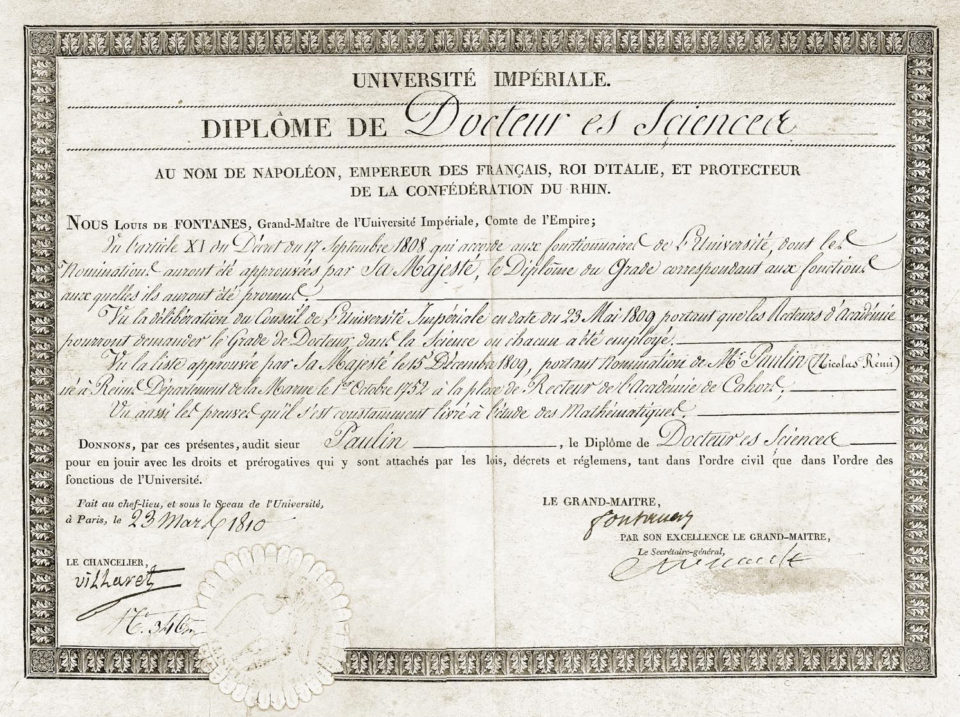 UNIVERSITÉ IMPÉRIALE.
DIPLÔME DE Docteur es Sciences
AU NOM DE NAPOLÉON, EMPEREUR DES FRANÇAIS, ROI D'ITALIE, ET PROTECTEUR
DE LA CONFÉDÉRATION DU RHIN.
NOUS LOUIS DE FONTANES, Grand-Maître de l'Université Impériale, Comte de l'Empire;
Vu l'article XI du Décret du 17 Septembre 1808 qui accorde aux fonctionnaires de l'Université, dont les
Nominations auront été approuvées par Sa Majesté, le Diplôme du Grade correspondant aux fonctions
aux quelles ils auront été promus.
Vu la délibération du Conseil de l'Université Impériale en date du 23 Mai 1809 portant que les Recteurs d'Académie
pourront demander le Grade de Docteur dans la Science ou chacun a été employé.
Vu la liste approuvée par Sa Majesté le 15 Décembre 1809, portant Nomination de Mr Paulin (Nicolas Rémi)
né à Reims Département de la Marne le 1er Octobre 1752 à la place de Recteur de l'Académie de Cahors;
Vu aussi les preuves qu'il s'est constamment livré à l'étude des Mathématiques.
DONNONS, par ces présentes, audit sieur Paulin, le Diplôme de Docteur es Sciences
pour en jouir avec les droits et prérogatives qui y sont attachés par les lois, décrets et réglemens, tant dans l'ordre civil que dans l'ordre des
fonctions de l'Université.
Fait au chef-lieu, et sous le Sceau de l'Université,
à Paris, le 23 Mars 1810
LE GRAND-MAITRE,
Fontanes
PAR SON EXCELLENCE LE GRAND-MAITRE,
Le Secrétaire-général,
LE CHANCELIER,
Villaret